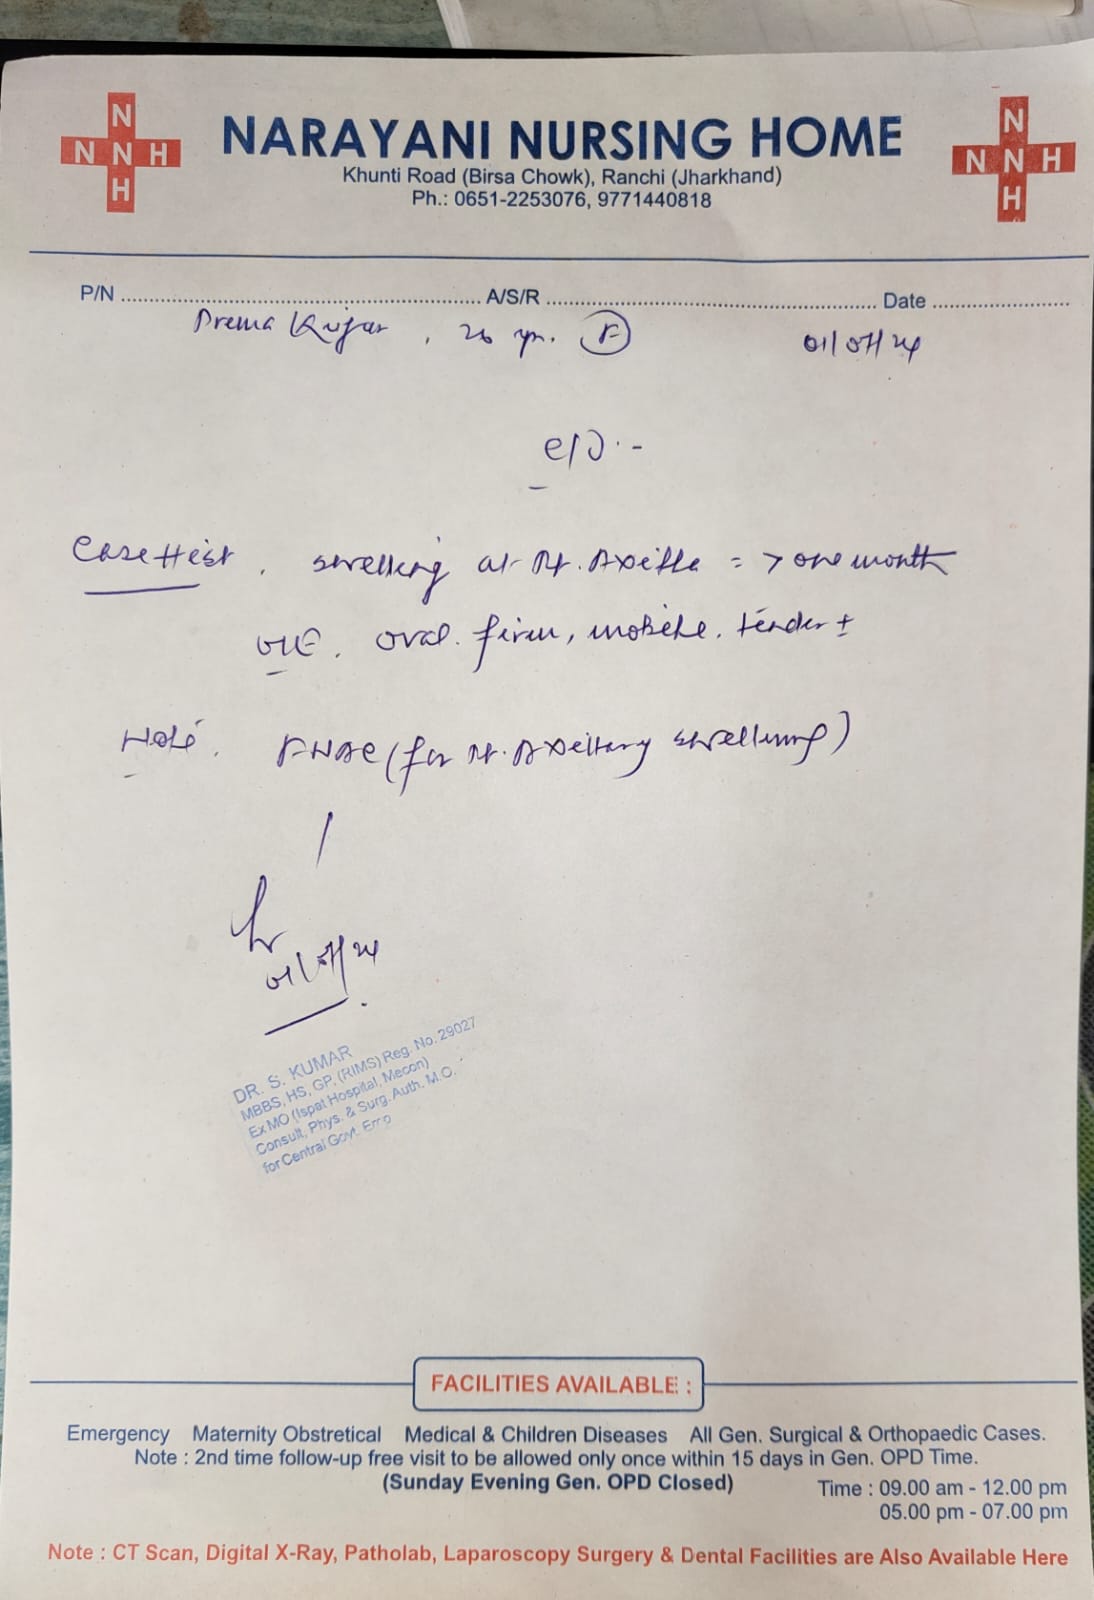 N
N N H
H
NARAYANI NURSING HOME
N
N N H
H
Khunti Road (Birsa Chowk), Ranchi (Jharkhand)
Ph.: 0651-2253076, 9771440818
P/N ........................ A/S/R ........................ Date ........................
Prema Kujur, yrs. F
Case Hist. swelling at Rt. Axilla = > one month
O/E. oval. firm, mobile. tender ±
Note. FNAC (for Rt. Axillary swelling)
DR. S. KUMAR
MBBS, HS, GP, (RIMS) Reg. No. 29027
Ex MO (Ispat Hospital, Mecon)
Consult, Phys. & Surg. Auth. M.O.
for Central Govt. Emp
FACILITIES AVAILABLE :
Emergency Maternity Obstretical Medical & Children Diseases All Gen. Surgical & Orthopaedic Cases.
Note : 2nd time follow-up free visit to be allowed only once within 15 days in Gen. OPD Time.
(Sunday Evening Gen. OPD Closed)
Time : 09.00 am - 12.00 pm
05.00 pm - 07.00 pm
Note : CT Scan, Digital X-Ray, Patholab, Laparoscopy Surgery & Dental Facilities are Also Available Here